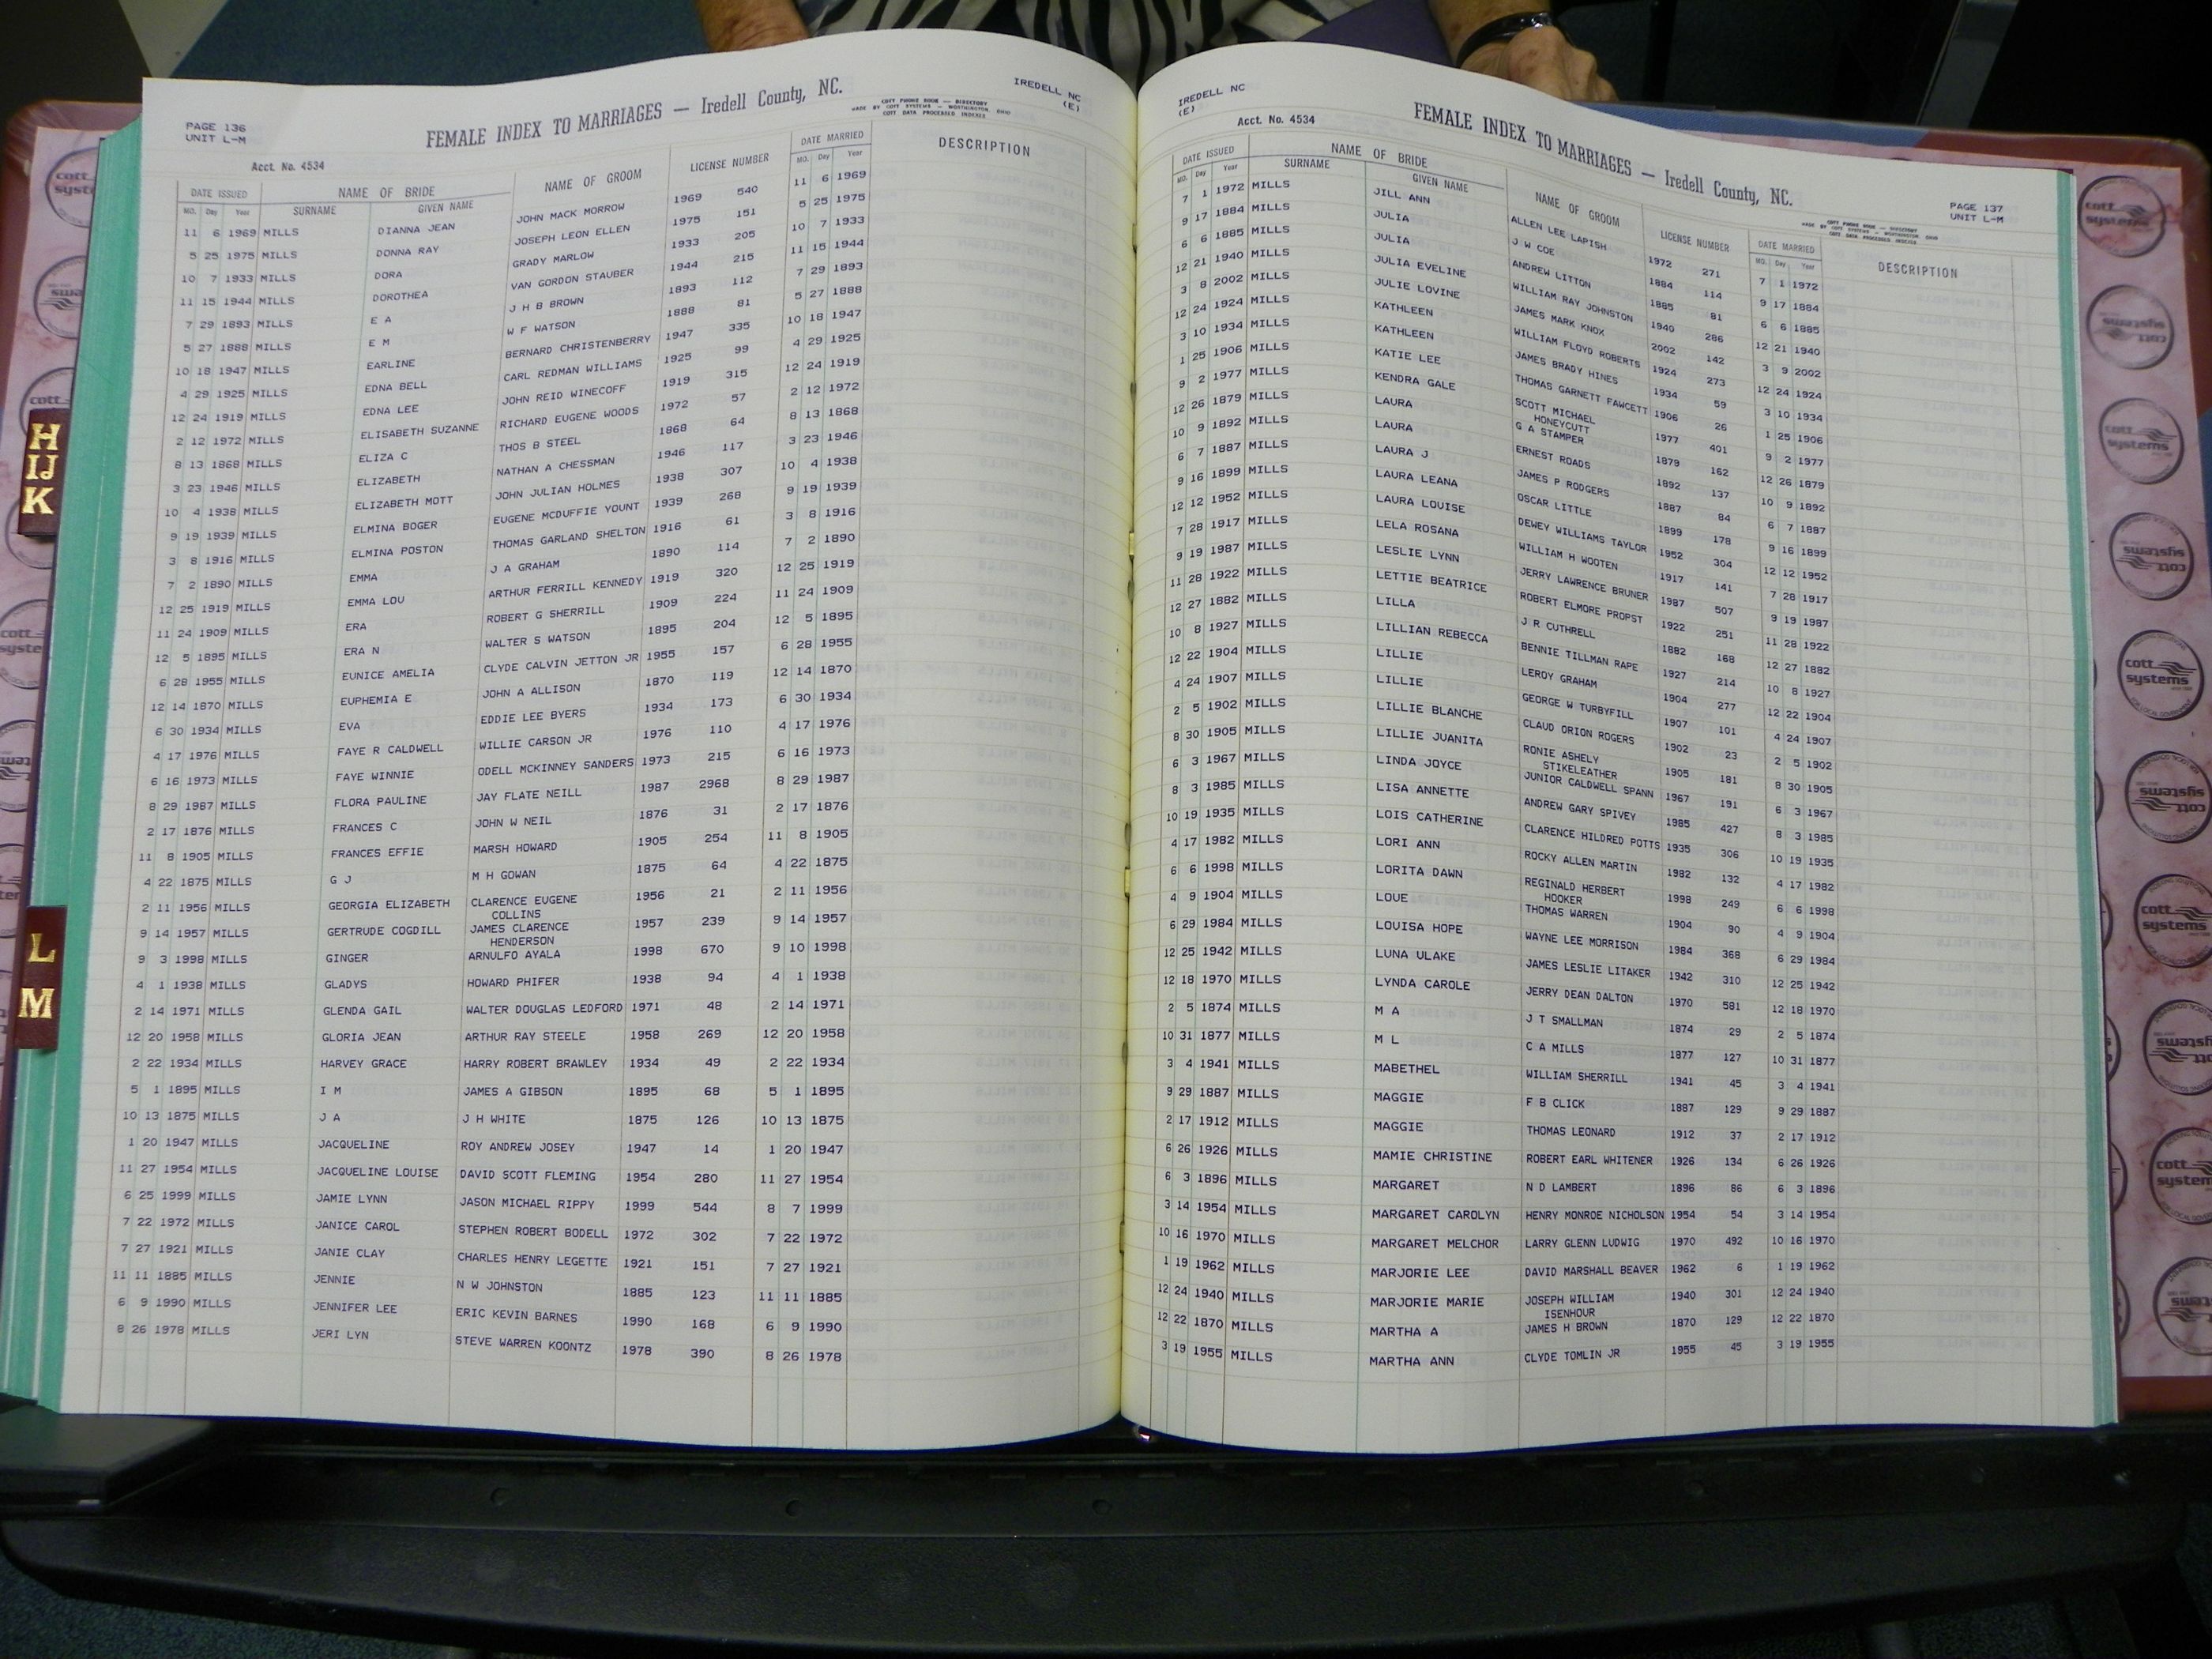 PAGE 136
UNIT L-M
FEMALE INDEX TO MARRIAGES — Iredell County, NC.
COTT PHONE BOOK — DIRECTORY
MADE BY COTT SYSTEMS — WORTHINGTON, OHIO
COTT DATA PROCESSED INDEXES
IREDELL NC
(E)
Acct. No. 4534
DATE ISSUED NAME OF BRIDE NAME OF GROOM LICENSE NUMBER DATE MARRIED DESCRIPTION
MO. Day Year SURNAME GIVEN NAME MO. Day Year
11 6 1969 MILLS DIANNA JEAN JOHN MACK MORROW 1969 540 11 6 1969
5 25 1975 MILLS DONNA RAY JOSEPH LEON ELLEN 1975 151 5 25 1975
10 7 1933 MILLS DORA GRADY MARLOW 1933 205 10 7 1933
11 15 1944 MILLS DOROTHEA VAN GORDON STAUBER 1944 215 11 15 1944
7 29 1893 MILLS E A J H B BROWN 1893 112 7 29 1893
5 27 1888 MILLS E M W F WATSON 1888 81 5 27 1888
10 18 1947 MILLS EARLINE BERNARD CHRISTENBERRY 1947 335 10 18 1947
4 29 1925 MILLS EDNA BELL CARL REDMAN WILLIAMS 1925 99 4 29 1925
12 24 1919 MILLS EDNA LEE JOHN REID WINECOFF 1919 315 12 24 1919
2 12 1972 MILLS ELISABETH SUZANNE RICHARD EUGENE WOODS 1972 57 2 12 1972
8 13 1868 MILLS ELIZA C THOS B STEEL 1868 64 8 13 1868
3 23 1946 MILLS ELIZABETH NATHAN A CHESSMAN 1946 117 3 23 1946
10 4 1938 MILLS ELIZABETH MOTT JOHN JULIAN HOLMES 1938 307 10 4 1938
9 19 1939 MILLS ELMINA BOGER EUGENE MCDUFFIE YOUNT 1939 268 9 19 1939
3 8 1916 MILLS ELMINA POSTON THOMAS GARLAND SHELTON 1916 61 3 8 1916
7 2 1890 MILLS EMMA J A GRAHAM 1890 114 7 2 1890
12 25 1919 MILLS EMMA LOU ARTHUR FERRILL KENNEDY 1919 320 12 25 1919
11 24 1909 MILLS ERA ROBERT G SHERRILL 1909 224 11 24 1909
12 5 1895 MILLS ERA N WALTER S WATSON 1895 204 12 5 1895
6 28 1955 MILLS EUNICE AMELIA CLYDE CALVIN JETTON JR 1955 157 6 28 1955
12 14 1870 MILLS EUPHEMIA E JOHN A ALLISON 1870 119 12 14 1870
6 30 1934 MILLS EVA EDDIE LEE BYERS 1934 173 6 30 1934
4 17 1976 MILLS FAYE R CALDWELL WILLIE CARSON JR 1976 110 4 17 1976
6 16 1973 MILLS FAYE WINNIE ODELL MCKINNEY SANDERS 1973 215 6 16 1973
8 29 1987 MILLS FLORA PAULINE JAY FLATE NEILL 1987 2968 8 29 1987
2 17 1876 MILLS FRANCES C JOHN W NEIL 1876 31 2 17 1876
11 8 1905 MILLS FRANCES EFFIE MARSH HOWARD 1905 254 11 8 1905
4 22 1875 MILLS G J M H GOWAN 1875 64 4 22 1875
2 11 1956 MILLS GEORGIA ELIZABETH CLARENCE EUGENE 1956 21 2 11 1956
COLLINS
9 14 1957 MILLS GERTRUDE COGDILL JAMES CLARENCE 1957 239 9 14 1957
HENDERSON
9 3 1998 MILLS GINGER ARNULFO AYALA 1998 670 9 10 1998
4 1 1938 MILLS GLADYS HOWARD PHIFER 1938 94 4 1 1938
2 14 1971 MILLS GLENDA GAIL WALTER DOUGLAS LEDFORD 1971 48 2 14 1971
12 20 1958 MILLS GLORIA JEAN ARTHUR RAY STEELE 1958 269 12 20 1958
2 22 1934 MILLS HARVEY GRACE HARRY ROBERT BRAWLEY 1934 49 2 22 1934
5 1 1895 MILLS I M JAMES A GIBSON 1895 68 5 1 1895
10 13 1875 MILLS J A J H WHITE 1875 126 10 13 1875
1 20 1947 MILLS JACQUELINE ROY ANDREW JOSEY 1947 14 1 20 1947
11 27 1954 MILLS JACQUELINE LOUISE DAVID SCOTT FLEMING 1954 280 11 27 1954
6 25 1999 MILLS JAMIE LYNN JASON MICHAEL RIPPY 1999 544 8 7 1999
7 22 1972 MILLS JANICE CAROL STEPHEN ROBERT BODELL 1972 302 7 22 1972
7 27 1921 MILLS JANIE CLAY CHARLES HENRY LEGETTE 1921 151 7 27 1921
11 11 1885 MILLS JENNIE N W JOHNSTON 1885 123 11 11 1885
6 9 1990 MILLS JENNIFER LEE ERIC KEVIN BARNES 1990 168 6 9 1990
8 26 1978 MILLS JERI LYN STEVE WARREN KOONTZ 1978 390 8 26 1978
H
IJ
K
L
M
IREDELL NC
(E)
Acct. No. 4534
FEMALE INDEX TO MARRIAGES — Iredell County, NC.
COTT PHONE BOOK — DIRECTORY
MADE BY COTT SYSTEMS — WORTHINGTON, OHIO
COTT DATA PROCESSED INDEXES
PAGE 137
UNIT L-M
DATE ISSUED NAME OF BRIDE NAME OF GROOM LICENSE NUMBER DATE MARRIED DESCRIPTION
MO. Day Year SURNAME GIVEN NAME MO. Day Year
7 1 1972 MILLS JILL ANN ALLEN LEE LAPISH 1972 271 7 1 1972
9 17 1884 MILLS JULIA J W COE 1884 114 9 17 1884
6 6 1885 MILLS JULIA ANDREW LITTON 1885 81 6 6 1885
12 21 1940 MILLS JULIA EVELINE WILLIAM RAY JOHNSTON 1940 286 12 21 1940
3 8 2002 MILLS JULIE LOVINE JAMES MARK KNOX 2002 142 3 9 2002
12 24 1924 MILLS KATHLEEN WILLIAM FLOYD ROBERTS 1924 273 12 24 1924
3 10 1934 MILLS KATHLEEN JAMES BRADY HINES 1934 59 3 10 1934
1 25 1906 MILLS KATIE LEE THOMAS GARNETT FAWCETT 1906 26 1 25 1906
9 2 1977 MILLS KENDRA GALE SCOTT MICHAEL 1977 401 9 2 1977
HONEYCUTT
12 26 1879 MILLS LAURA G A STAMPER 1879 162 12 26 1879
10 9 1892 MILLS LAURA ERNEST ROADS 1892 137 10 9 1892
6 7 1887 MILLS LAURA J JAMES P RODGERS 1887 84 6 7 1887
9 16 1899 MILLS LAURA LEANA OSCAR LITTLE 1899 178 9 16 1899
12 12 1952 MILLS LAURA LOUISE DEWEY WILLIAMS TAYLOR 1952 304 12 12 1952
7 28 1917 MILLS LELA ROSANA WILLIAM H WOOTEN 1917 141 7 28 1917
9 19 1987 MILLS LESLIE LYNN JERRY LAWRENCE BRUNER 1987 507 9 19 1987
11 28 1922 MILLS LETTIE BEATRICE ROBERT ELMORE PROPST 1922 251 11 28 1922
12 27 1882 MILLS LILLA J R CUTHRELL 1882 168 12 27 1882
10 8 1927 MILLS LILLIAN REBECCA BENNIE TILLMAN RAPE 1927 214 10 8 1927
12 22 1904 MILLS LILLIE LEROY GRAHAM 1904 277 12 22 1904
4 24 1907 MILLS LILLIE GEORGE W TURBYFILL 1907 101 4 24 1907
2 5 1902 MILLS LILLIE BLANCHE CLAUD ORION ROGERS 1902 23 2 5 1902
8 30 1905 MILLS LILLIE JUANITA RONIE ASHELY 1905 181 8 30 1905
STIKELEATHER
6 3 1967 MILLS LINDA JOYCE JUNIOR CALDWELL SPANN 1967 191 6 3 1967
8 3 1985 MILLS LISA ANNETTE ANDREW GARY SPIVEY 1985 427 8 3 1985
10 19 1935 MILLS LOIS CATHERINE CLARENCE HILDRED POTTS 1935 306 10 19 1935
4 17 1982 MILLS LORI ANN ROCKY ALLEN MARTIN 1982 132 4 17 1982
6 6 1998 MILLS LORITA DAWN REGINALD HERBERT 1998 249 6 6 1998
HOOKER
4 9 1904 MILLS LOUE THOMAS WARREN 1904 90 4 9 1904
6 29 1984 MILLS LOUISA HOPE WAYNE LEE MORRISON 1984 368 6 29 1984
12 25 1942 MILLS LUNA ULAKE JAMES LESLIE LITAKER 1942 310 12 25 1942
12 18 1970 MILLS LYNDA CAROLE JERRY DEAN DALTON 1970 581 12 18 1970
2 5 1874 MILLS M A J T SMALLMAN 1874 29 2 5 1874
10 31 1877 MILLS M L C A MILLS 1877 127 10 31 1877
3 4 1941 MILLS MABETHEL WILLIAM SHERRILL 1941 45 3 4 1941
9 29 1887 MILLS MAGGIE F B CLICK 1887 129 9 29 1887
2 17 1912 MILLS MAGGIE THOMAS LEONARD 1912 37 2 17 1912
6 26 1926 MILLS MAMIE CHRISTINE ROBERT EARL WHITENER 1926 134 6 26 1926
6 3 1896 MILLS MARGARET N D LAMBERT 1896 86 6 3 1896
3 14 1954 MILLS MARGARET CAROLYN HENRY MONROE NICHOLSON 1954 54 3 14 1954
10 16 1970 MILLS MARGARET MELCHOR LARRY GLENN LUDWIG 1970 492 10 16 1970
1 19 1962 MILLS MARJORIE LEE DAVID MARSHALL BEAVER 1962 6 1 19 1962
12 24 1940 MILLS MARJORIE MARIE JOSEPH WILLIAM 1940 301 12 24 1940
ISENHOUR
12 22 1870 MILLS MARTHA A JAMES H BROWN 1870 129 12 22 1870
3 19 1955 MILLS MARTHA ANN CLYDE TOMLIN JR 1955 45 3 19 1955
cott
systems